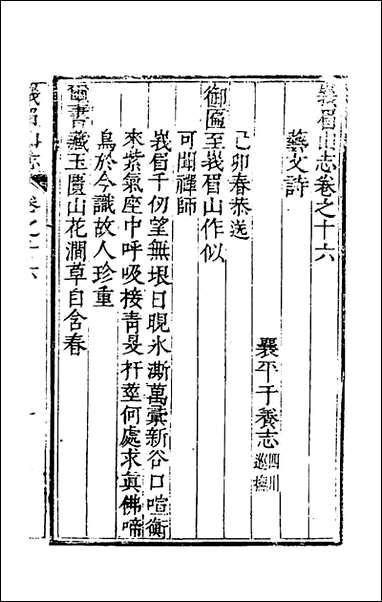 峩眉山志卷之十六
藝文詩
襄平于養志四川巡撫
己卯春恭送
御匾至峩眉山作似
可聞禪師
峩眉千仞望無垠日晛氷澌萬彙新谷口喧衡
來紫氣座中呼吸接青旻扞莖何處求真佛啼
鳥於今識故人珍重
璽書藏玉匱山花澗草自含春
峩眉山志
卷之十六
一